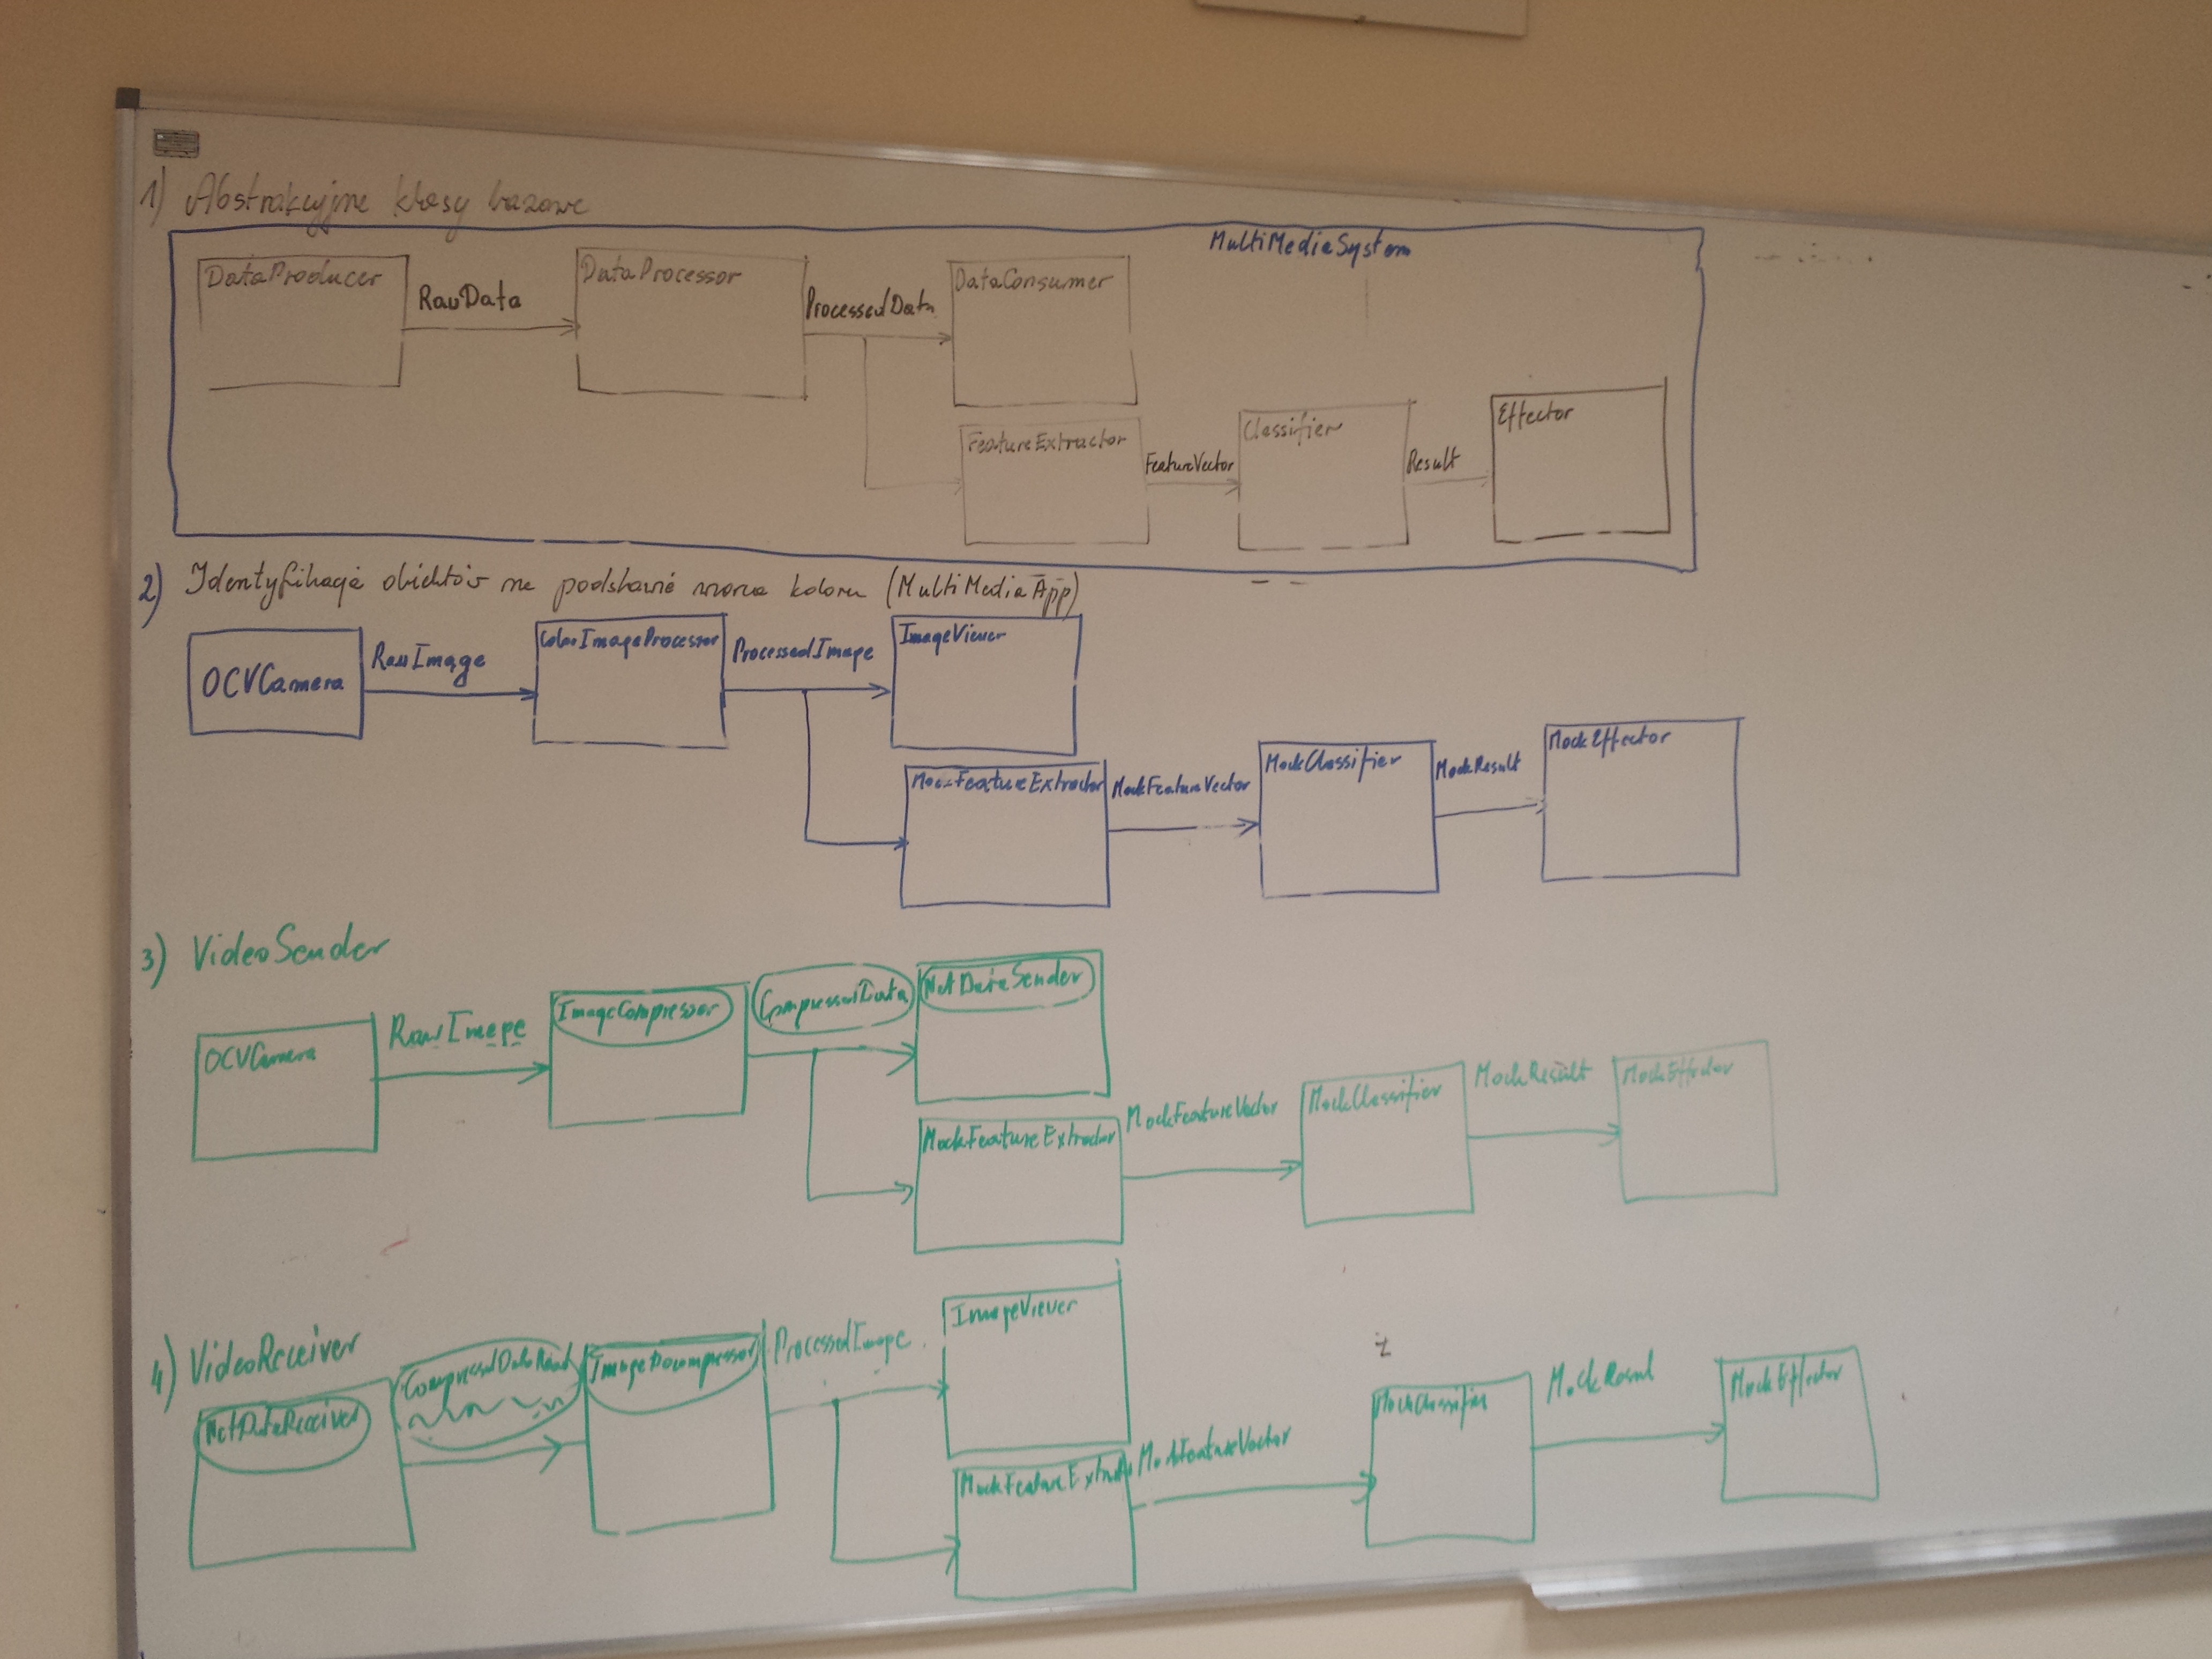 1) Abstrakcyjne klasy bazowe
MultiMediaSystem
DataProducer
RawData
DataProcessor
ProcessedData
DataConsumer
FeatureExtractor
FeatureVector
Classifier
Result
Effector
2) Identyfikacja obiektów na podstawie wzorca koloru (MultiMediaApp)
OCVCamera
RawImage
ColorImageProcessor
ProcessedImage
ImageViewer
MockFeatureExtractor
MockFeatureVector
MockClassifier
MockResult
MockEffector
3) VideoSender
OCVCamera
RawImage
ImageCompressor
CompressedData
NetDataSender
MockFeatureExtractor
MockFeatureVector
MockClassifier
MockResult
MockEffector
4) VideoReceiver
NetDataReceiver
ImageDecompressor
ProcessedImage
ImageViewer
MockFeatureExtractor
MockFeatureVector
MockClassifier
MockEffector